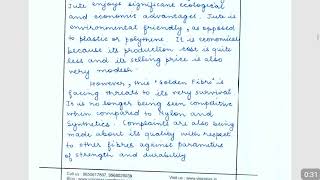 Jute enjoys significant ecological
and economic advantages. Jute is
environmental friendly, as opposed
to plastic or polythene. It is economical
because its production cost is quite
less and its selling price is also
very modest.
However, this 'Golden Fibre' is
facing threats to its very survival.
It is no longer being seen competitive
when compared to Nylon and
Synthetics. Complaints are also being
made about its quality with respect
to other fibres against parameters
of strength and durability
Call us :
Visit us :
0:31